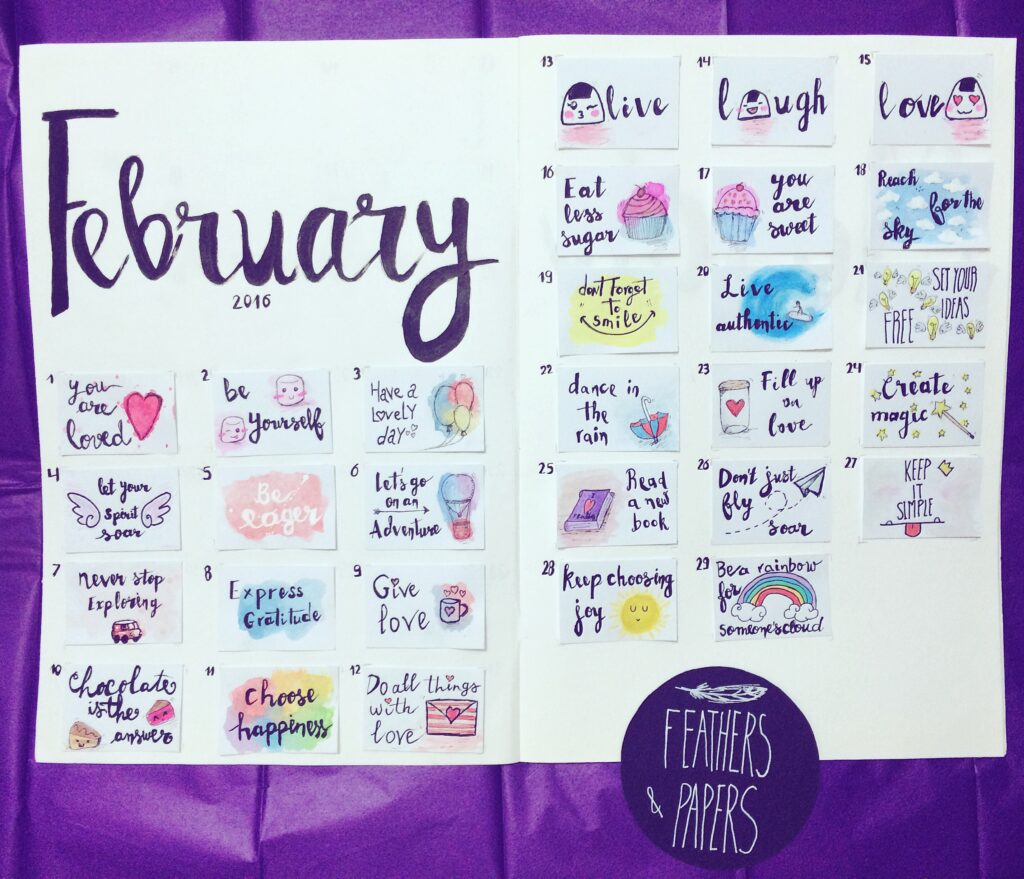 February
2016
1
you
are
loved
2
be
yourself
3
Have a
lovely
day
4
let your
spirit
soar
5
Be
eager
6
let's go
on an
Adventure
7
never stop
Exploring
8
Express
Gratitude
9
Give
love
10
Chocolate
is the
answer
11
choose
happiness
12
Do all things
with
love
13
live
14
laugh
15
love
16
Eat
less
sugar
17
you
are
sweet
18
Reach
for the
sky
19
don't forget
to
smile
20
Live
authentic
21
SET YOUR
IDEAS
FREE
22
dance in
the
rain
23
Fill up
on
love
24
Create
magic
25
Read
a new
book
26
Don't just
fly
soar
27
KEEP
IT
SIMPLE
28
keep choosing
joy
29
Be a rainbow
for
someone's cloud
FEATHERS
& PAPERS